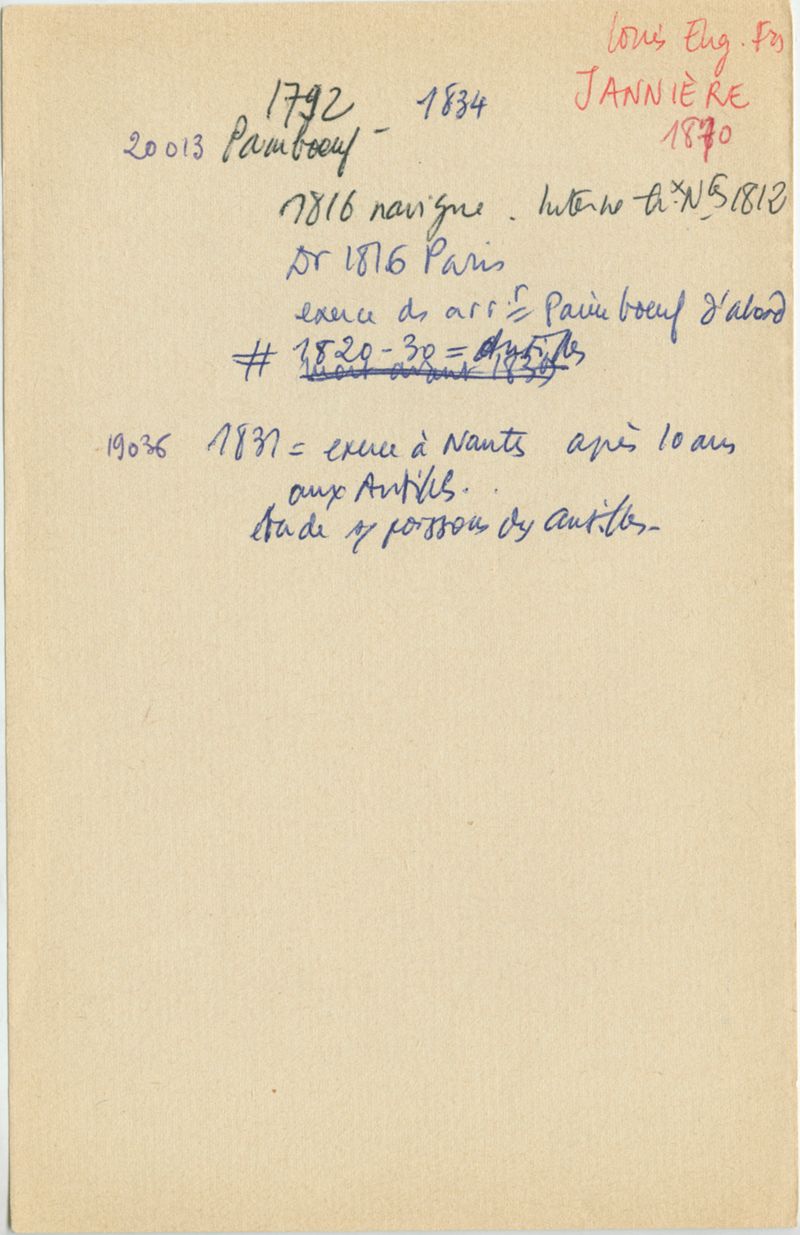 Louis Eug. Frs
JANNIÈRE
1870
1792 1834
20013 Paimboeuf -
1816 navigue. Interne hx Nts 1812
Dr 1816 Paris
exerce ds arrr = Paimboeuf d'abord
# 1820-30 = Antilles
mort avant 1830
19036 1831 = exerce à Nantes après 10 ans
aux Antilles.
étude s/ poissons des Antilles-